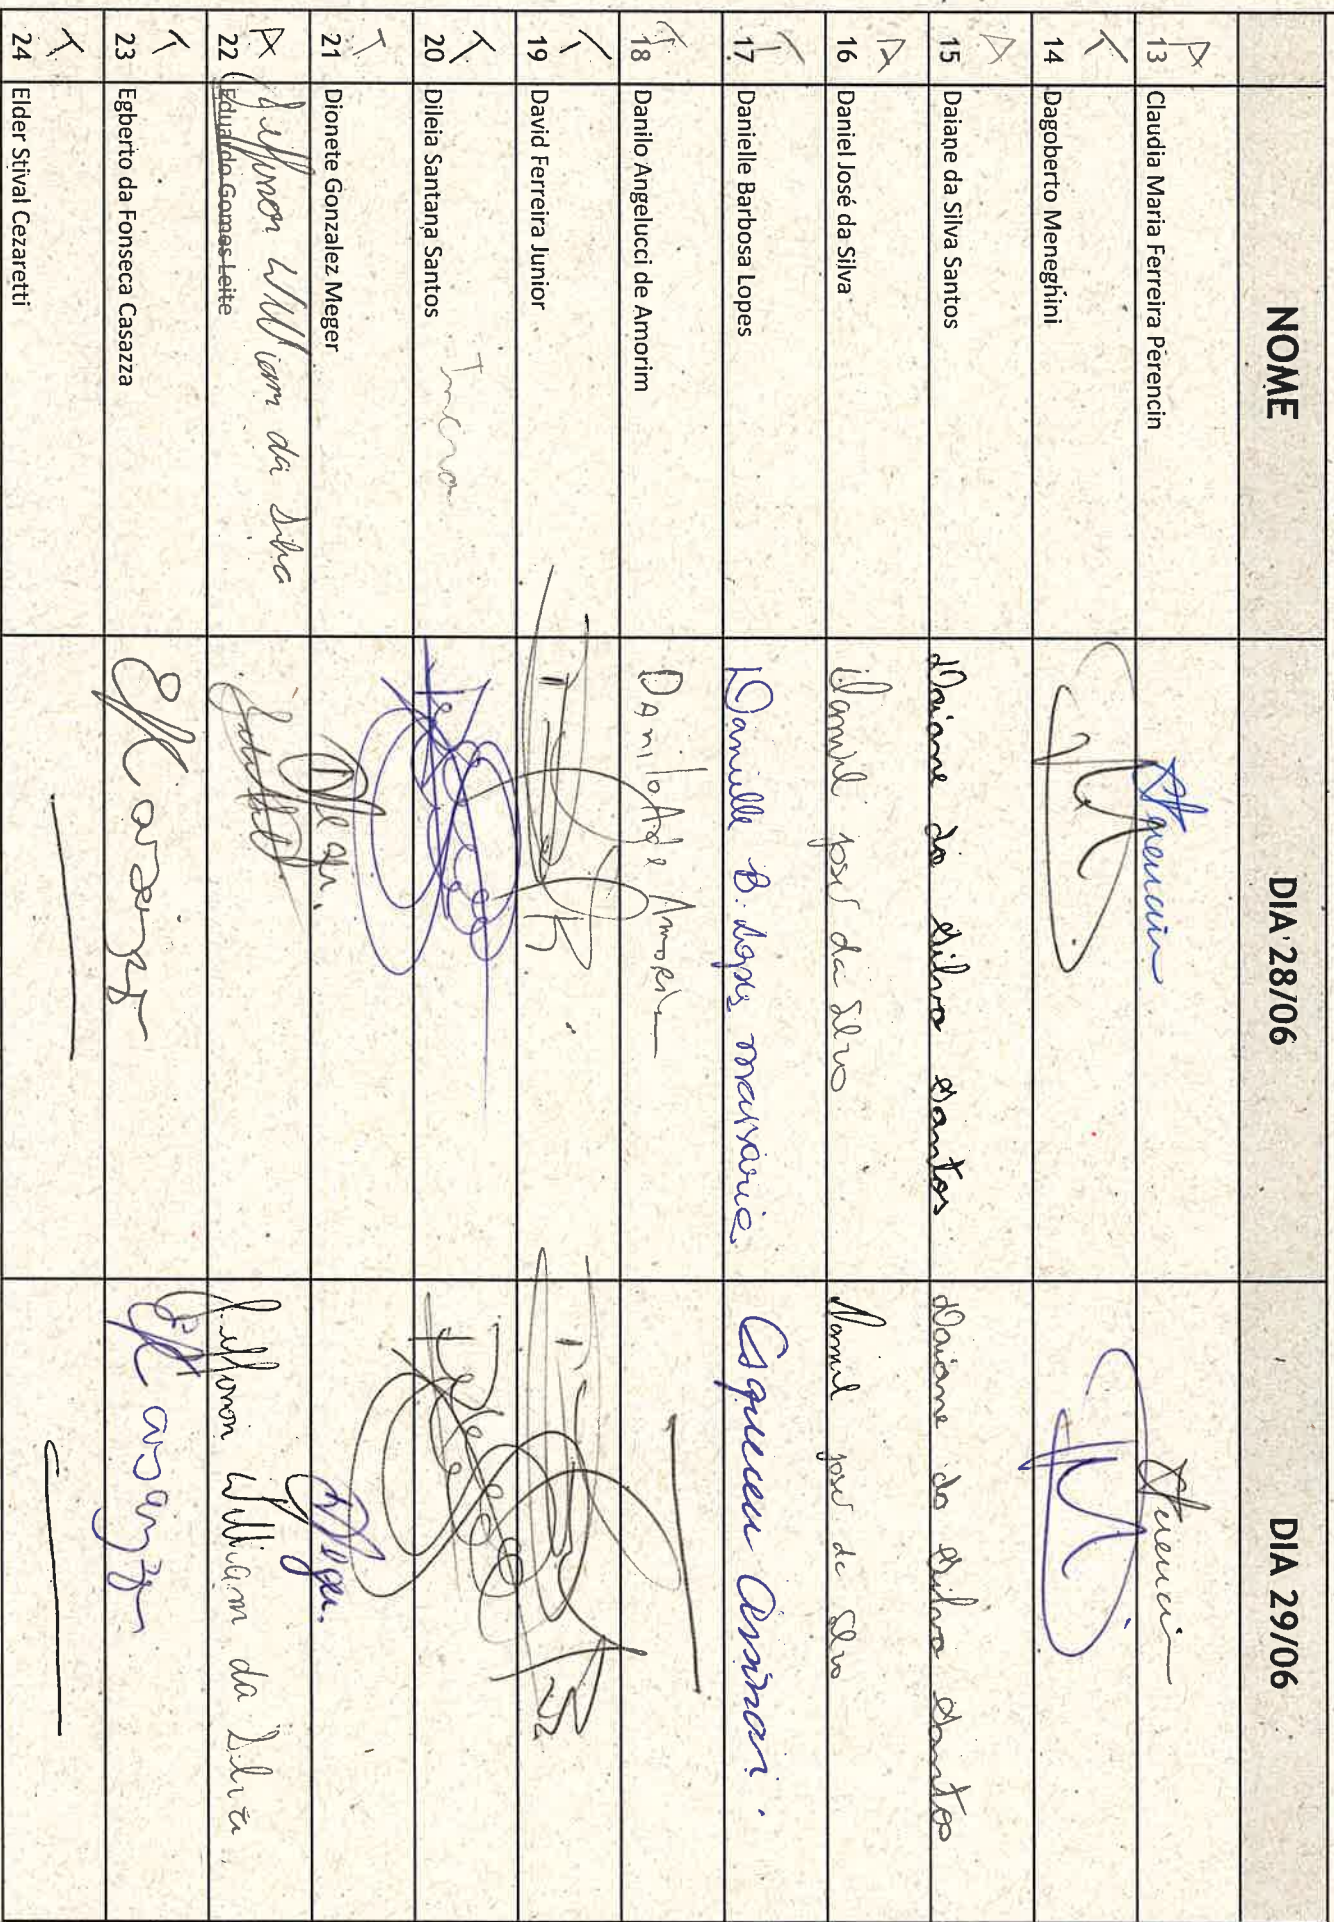 NOME DIA 28/06 DIA 29/06
A 13 Claudia Maria Ferreira Perencin
T 14 Dagoberto Meneghini
A 15 Daiane da Silva Santos Daiane da Silva Santos Daiane da Silva Santos
A 16 Daniel José da Silva Daniel José da Silva Daniel José da Silva
T 17 Danielle Barbosa Lopes Danielle B. Lopes Esqueceu Assinar.
T 18 Danilo Angelucci de Amorim Danilo A de Amorim
T 19 David Ferreira Junior
T 20 Dileia Santana Santos
T 21 Dionete Gonzalez Meger
A 22 Eduardo Gomes Leite Jefferson William da Silva Jefferson William da Silva
T 23 Egberto da Fonseca Casazza
T 24 Elder Stival Cezaretti